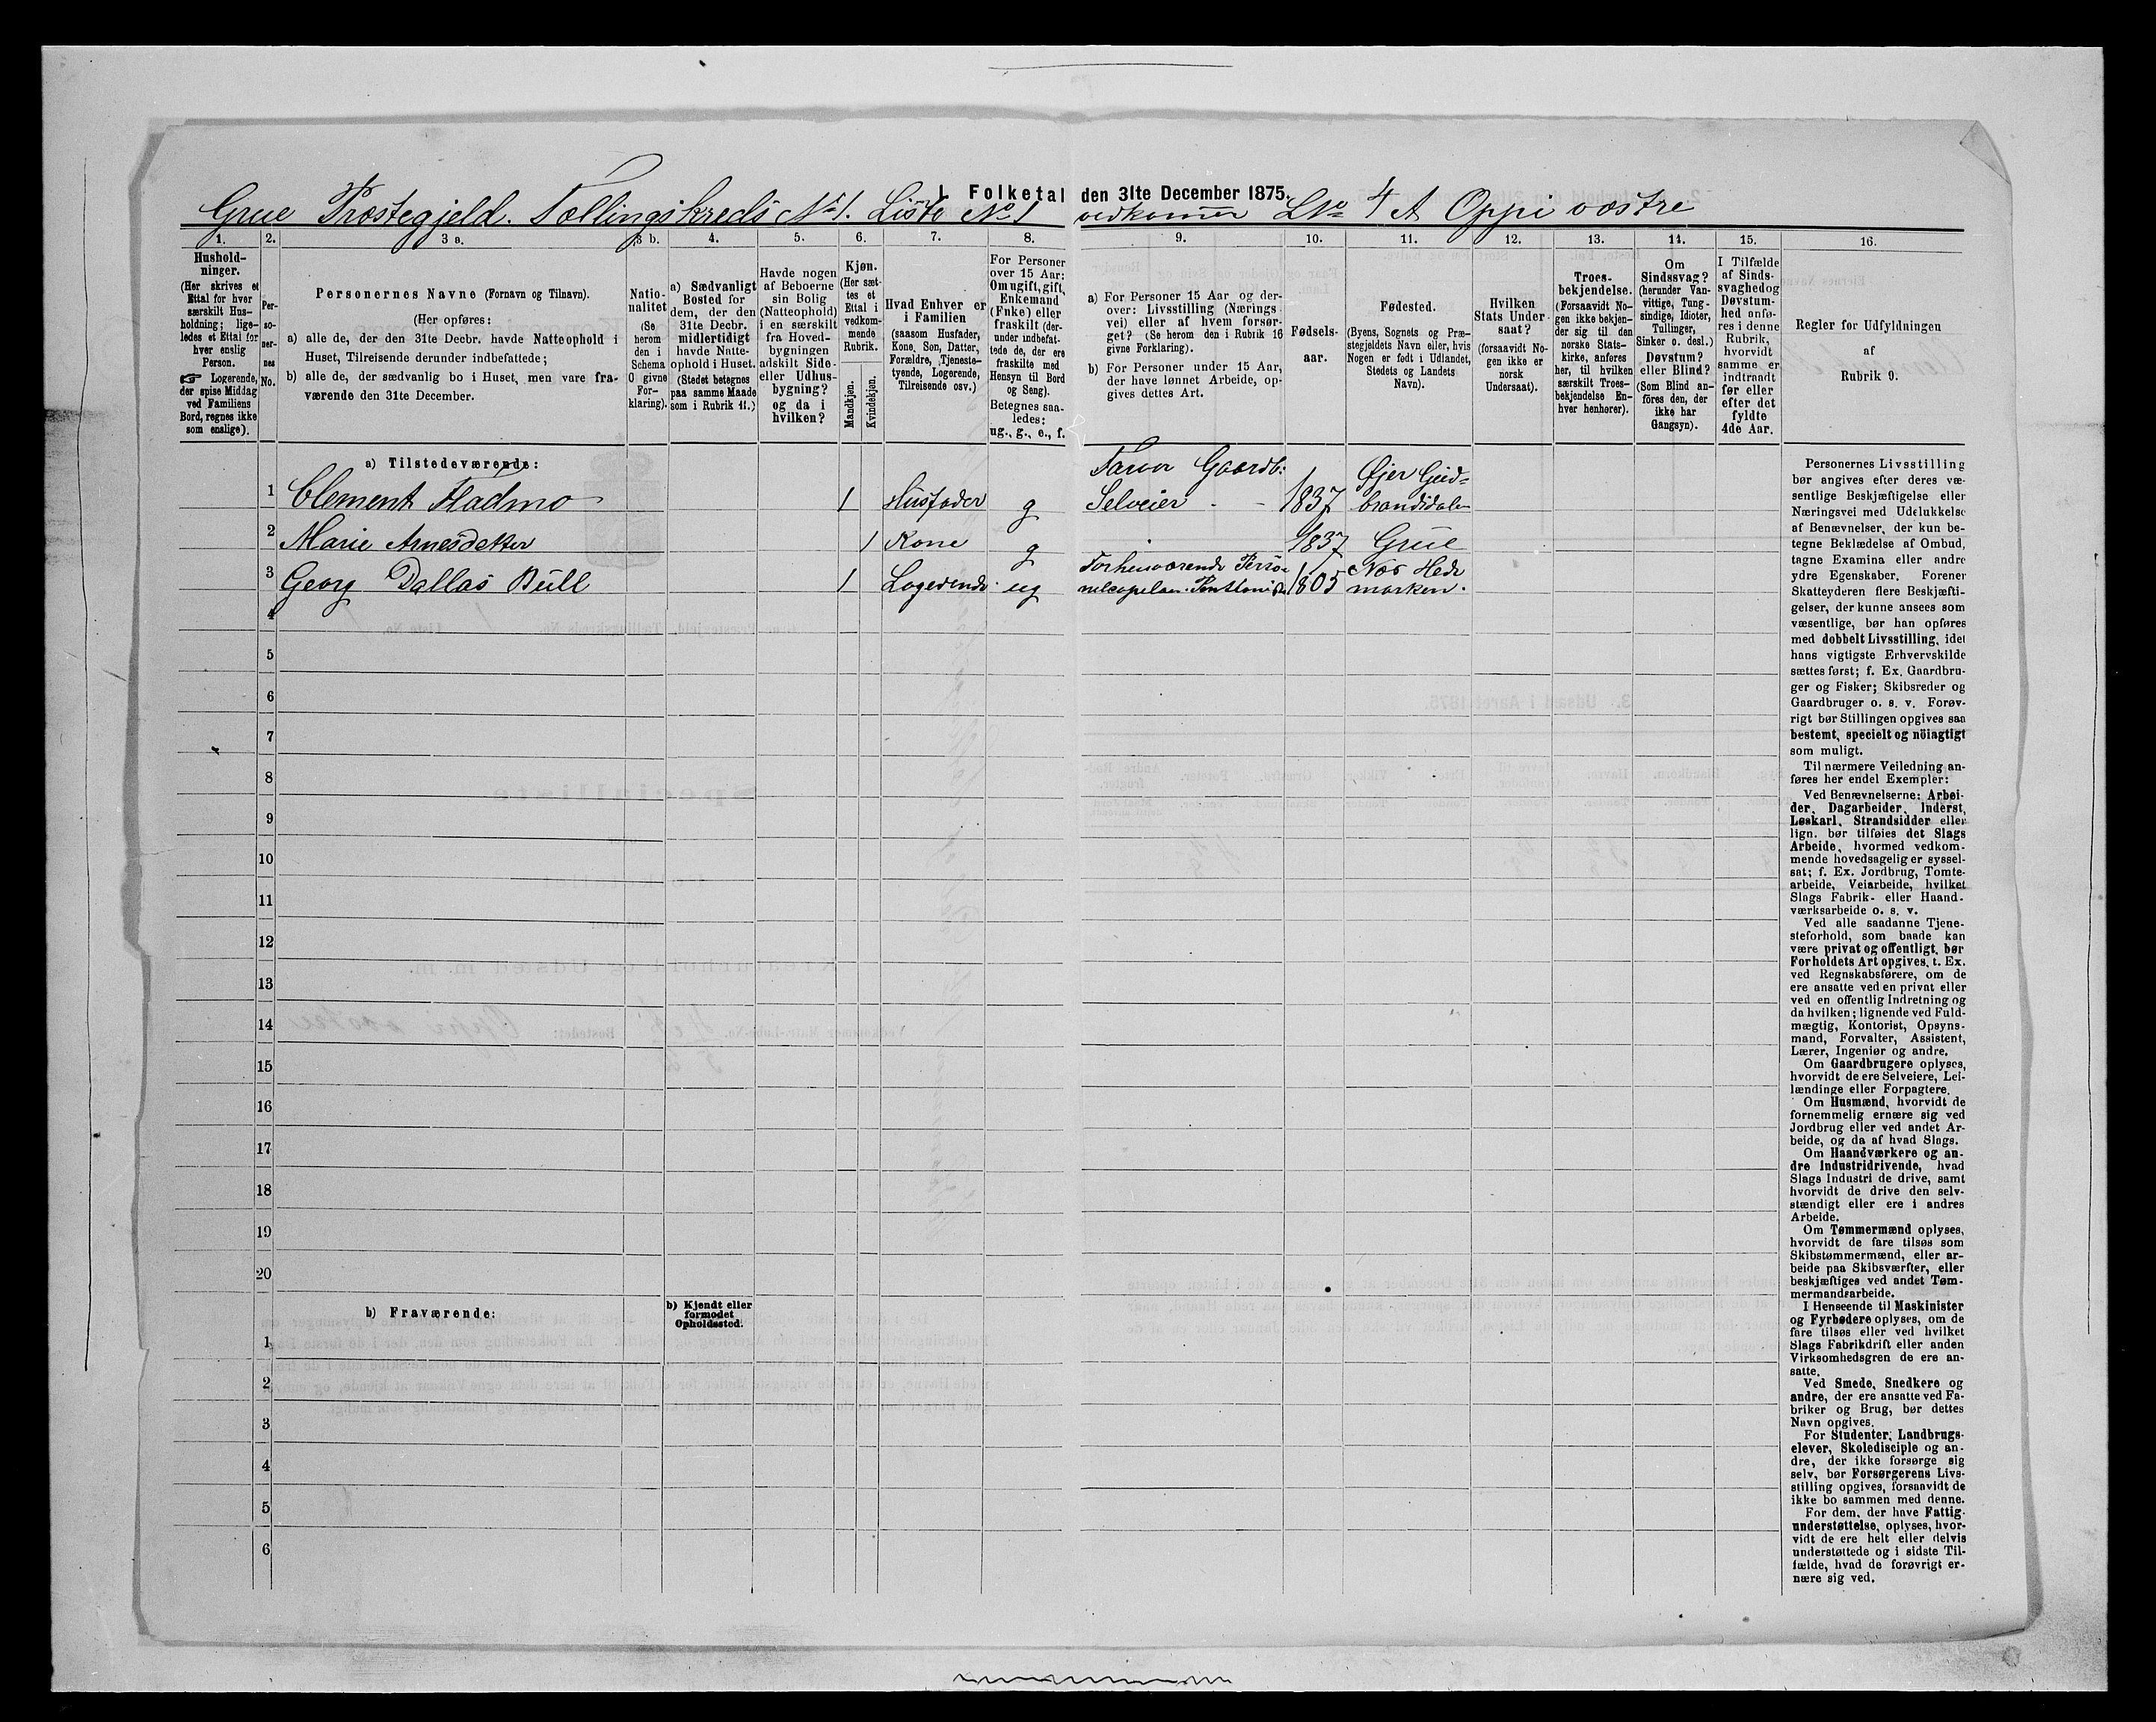 I. Folketal den 31te December 1875.
Grue Præstegjeld. Tællingskreds No 1. Liste No 1 vedkommer LNo 4 A Oppi væstre
1. 2. 3 a. 3 b. 4. 5. 6. 7. 8. 9. 10. 11. 12. 13. 14. 15. 16.
Hushold-
ninger.
(Her skrives et
Ettal for hver
særskilt Hus-
holdning; lige-
ledes et Ettal for
hver enslig
Person.
☞ Logerende,
der spise Middag
ved Familiens
Bord, regnes ikke
som enslige).
Per-
so-
ner-
nes
No.
Personernes Navne (Fornavn og Tilnavn).
(Her opføres:
a) alle de, der den 31te Decbr. havde Natteophold i
Huset, Tilreisende derunder indbefattede;
b) alle de, der sædvanlig bo i Huset, men vare fra-
værende den 31te December.
Natio-
nalitet
(Se
herom
den i
Schema
O givne
For-
klaring).
a) Sædvanligt
Bosted for
dem, der den
31te Decbr.
midlertidigt
havde Natte-
ophold i Huset.
(Stedet betegnes
paa samme Maade
som i Rubrik 11.)
Havde nogen
af Beboerne
sin Bolig
(Natteophold)
i en særskilt
fra Hoved-
bygningen
adskilt Side-
eller Udhus-
bygning?
og da i
hvilken?
Kjøn.
(Her sæt-
tes et
Ettal i
vedkom-
mende
Rubrik.
Mandkjøn.
Kvindekjøn.
Hvad Enhver er
i Familien
(saasom Husfader,
Kone, Søn, Datter,
Forældre, Tjeneste-
tyende, Logerende,
Tilreisende osv.)
For Personer
over 15 Aar:
Om ugift, gift,
Enkemand
(Enke) eller
fraskilt (der-
under indbefat-
tede de, der ere
fraskilte med
Hensyn til Bord
og Seng).
Betegnes saa-
ledes:
ug., g., e., f.
a) For Personer 15 Aar og der-
over: Livsstilling (Nærings
vei) eller af hvem forsør-
get? (Se herom den i Rubrik 16
givne Forklaring).
b) For Personer under 15 Aar,
der have lønnet Arbeide, op-
gives dettes Art.
Fødsels-
aar.
Fødested.
(Byens, Sognets og Præ-
stegjeldets Navn eller, hvis
Nogen er født i Udlandet,
Stedets og Landets
Navn).
Hvilken
Stats Under-
saat?
(forsaavidt No-
gen ikke er
norsk
Undersaat).
Troes-
bekjendelse.
(Forsaavidt No-
gen ikke bekjen-
der sig til den
norske Stats-
kirke, anføres
her, til hvilken
særskilt Troes-
bekjendelse En-
hver henhører).
Om
Sindssvag?
(herunder Van-
vittige, Tung-
sindige, Idioter,
Tullinger,
Sinker o. desl.)
Døvstum?
eller Blind?
(Som Blind an-
føres den, der
ikke har
Gangsyn).
I Tilfælde
af Sinds-
svaghed og
Døvstum-
hed anfø-
res i denne
Rubrik,
hvorvidt
samme er
indtraadt
før eller
efter det
fyldte
4de Aar.
Regler for Udfyldningen
af
Rubrik 9.
a) Tilstedeværende:
1 Clement Fladmo 1 Husfader g Gaardb: Selveier 1837 Øjer Gud-
brandsdalen
2 Marie Arnesdatter 1 Kone g 1837 Grue
3 Georg Dallas Bull 1 Logerende ug Forhenværende
1805 Næs Hede
marken.
4
5
6
7
8
9
10
11
12
13
14
15
16
17
18
19
20
b) Fraværende:
b) Kjendt eller
formodet
Opholdssted.
1
2
3
4
5
6
Personernes Livsstilling
bør angives efter deres væ-
sentlige Beskjæftigelse eller
Næringsvei med Udelukkelse
af Benævnelser, der kun be-
tegne Beklædelse af Ombud,
tagne Examina eller andre
ydre Egenskaber. Forener
Skatteyderen flere Beskjæfti-
gelser, der kunne ansees som
væsentlige, bør han opføres
med dobbelt Livsstilling, idet
hans vigtigste Erhvervskilde
sættes først; f. Ex. Gaardbru-
ger og Fisker; Skibsreder og
Gaardbruger o. s. v. Forøv-
rigt bør Stillingen opgives saa
bestemt, specielt og nöiagtigt
som muligt.
Til nærmere Veiledning an-
føres her endel Exempler:
Ved Benævnelserne: Arbei-
der, Dagarbeider, Inderst,
Løskarl, Strandsidder eller
lign. bør tilføies det Slags
Arbeide, hvormed vedkom-
mende hovedsagelig er syssel-
sat; f. Ex. Jordbrug, Tomte-
arbeide, Veiarbeide, hvilket
Slags Fabrik- eller Haand-
værksarbeide o. s. v.
Ved alle saadanne Tjene-
steforhold, som baade kan
være privat og offentligt, bør
Forholdets Art opgives, t. Ex.
ved Regnskabsførere, om de
ere ansatte ved en privat eller
ved en offentlig Indretning og
da hvilken; lignende ved Fuld-
mægtig, Kontorist, Opsyns-
mand, Forvalter, Assistent,
Lærer, Ingeniør og andre.
Om Gaardbrugere oplyses,
hvorvidt de ere Selveiere, Lei-
lændinge eller Forpagtere.
Om Husmænd, hvorvidt de
fornemmelig ernære sig ved
Jordbrug eller ved andet Ar-
beide, og da af hvad Slags.
Om Haandværkere og an-
dre Industridrivende, hvad
Slags Industri de drive, samt
hvorvidt de drive den selv-
stændigt eller ere i andres
Arbeide.
Om Tømmermænd oplyses,
hvorvidt de fare tilsøs som
Skibstømmermænd, eller ar-
beide paa Skibsværfter, eller
beskjæftiges ved andet Tøm-
mermandsarbeide.
I Henseende til Maskinister
og Fyrbødere oplyses, om de
fare tilsøs eller ved hvilket
Slags Fabrikdrift eller anden
Virksomhedsgren de ere an-
satte.
Ved Smede, Snedkere og
andre, der ere ansatte ved Fa-
briker og Brug, bør dettes
Navn opgives.
For Studenter, Landbrugs-
elever, Skoledisciple og an-
dre, der ikke forsørge sig
selv, bør Forsørgerens Livs-
stilling opgives, forsaavidt de
ikke bo sammen med denne.
For dem, der have Fattig-
understøttelse, oplyses, hvor-
vidt de ere helt eller delvis
understøttede og i sidste Til-
fælde, hvad de forøvrigt er-
nære sig ved.